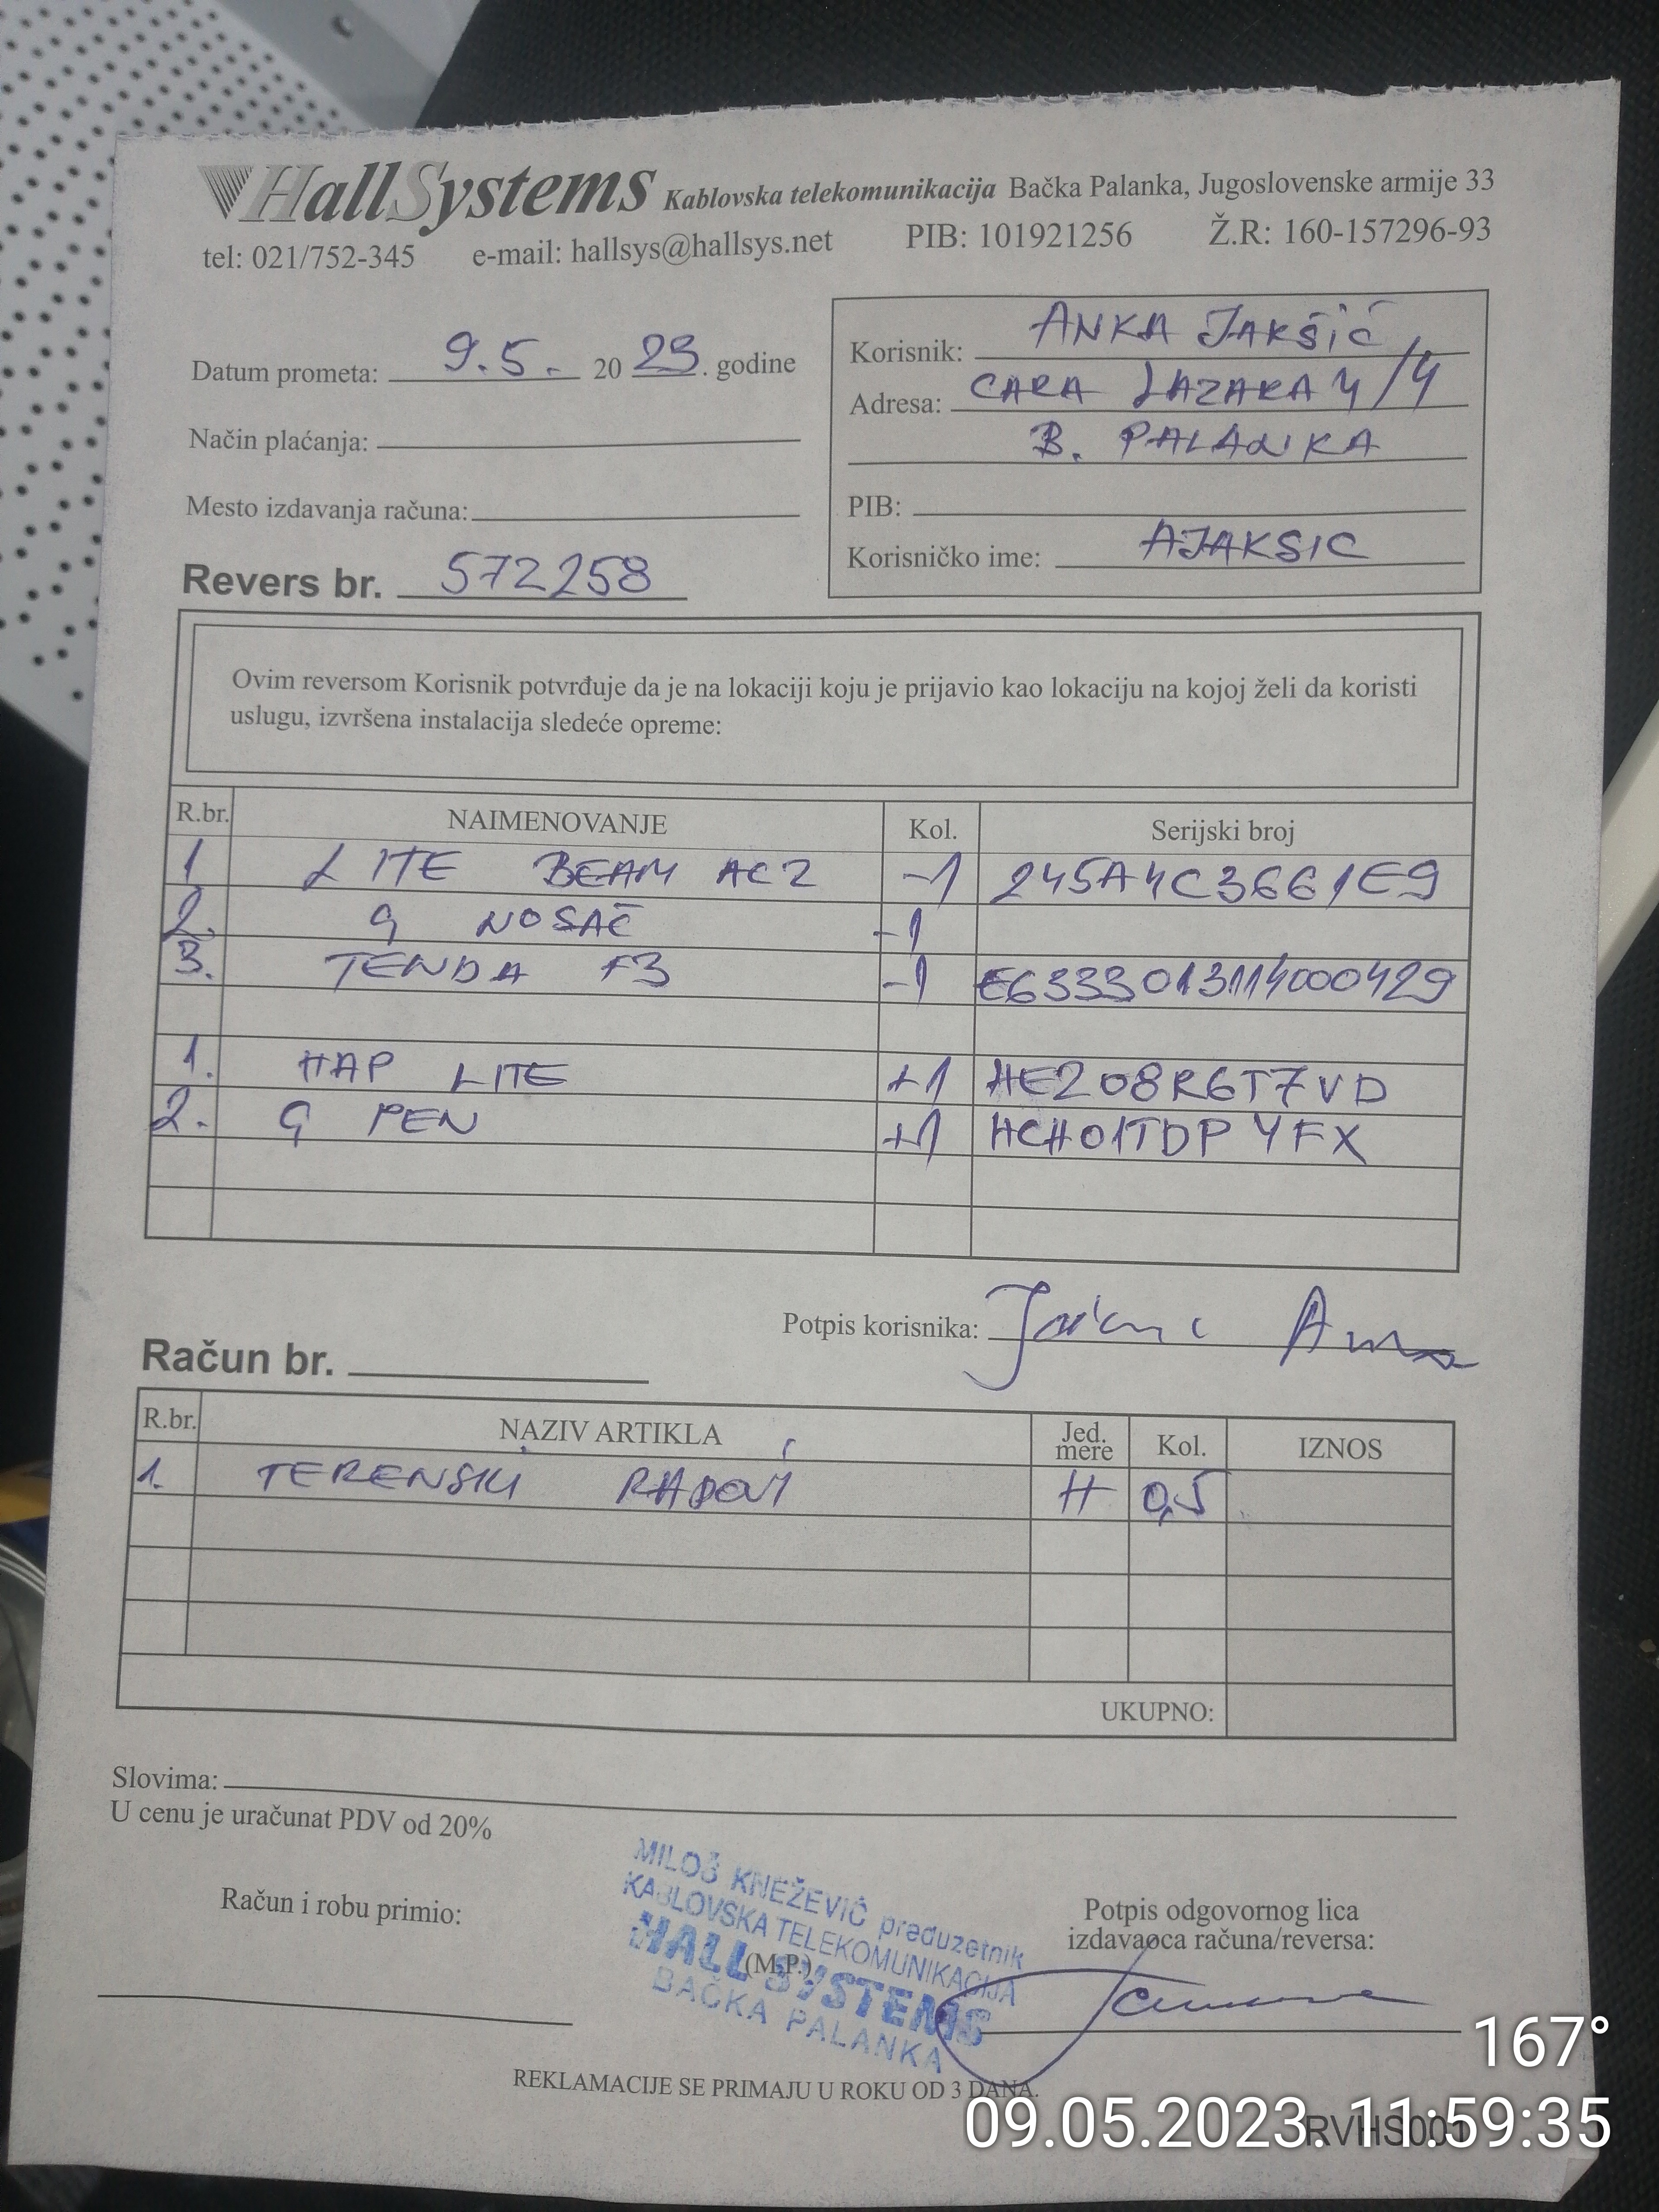 HallSystems Kablovska telekomunikacija Bačka Palanka, Jugoslovenske armije 33
tel: 021/752-345 e-mail: hallsys@hallsys.net PIB: 101921256 Ž.R: 160-157296-93
Datum prometa: 9.5. 20 23. godine
Način plaćanja:
Mesto izdavanja računa:
Revers br. 572258
Korisnik: ANKA JAKŠIĆ
Adresa: CARA LAZARA 4/4
B. PALANKA
PIB:
Korisničko ime: AJAKSIC
Ovim reversom Korisnik potvrđuje da je na lokaciji koju je prijavio kao lokaciju na kojoj želi da koristi
uslugu, izvršena instalacija sledeće opreme:
R.br. NAIMENOVANJE Kol. Serijski broj
1 LITE BEAM AC2 -1 245A4C3661E9
2. G NOSAČ -1
3. TENDA F3 -1 E6333013114000429
1. HAP LITE +1 HE208R6T7VD
2. G PEN +1 HCH01TDPYFX
Potpis korisnika:
Račun br.
R.br. NAZIV ARTIKLA Jed. mere Kol. IZNOS
1. TERENSKI RADOVI H 0,5
UKUPNO:
Slovima:
U cenu je uračunat PDV od 20%
MILOŠ KNEŽEVIĆ preduzetnik
KABLOVSKA TELEKOMUNIKACIJA
HALL SYSTEMS
BAČKA PALANKA
Račun i robu primio:
(M.P.)
Potpis odgovornog lica
izdavaoca računa/reversa:
REKLAMACIJE SE PRIMAJU U ROKU OD 3 DANA.
RVHS001
167°
09.05.2023 11:59:35